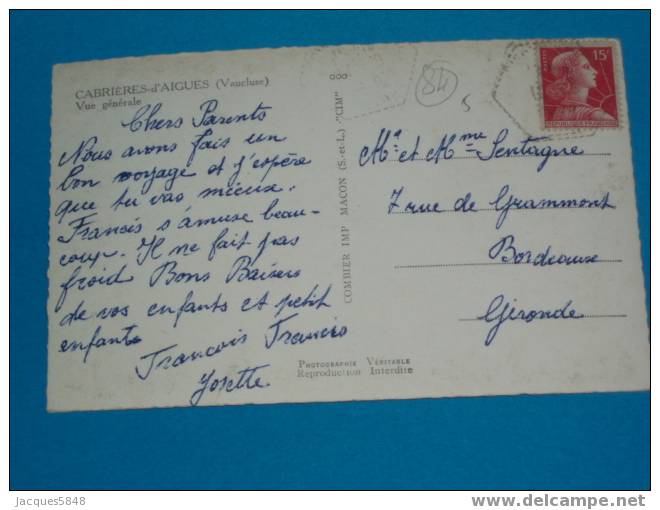 CABRIÈRES-d'AIGUES (Vaucluse)
Vue générale
Chers Parents
Nous avons fais un
bon voyage et j'espère
que tu vas mieux.
Francis s'amuse beau-
coup. Il ne fait pas
froid Bons Baisers
de vos enfants et petit
enfants
Francois Francis
Josette
COMBIER IMP MACON (S.-et-L.) "CIM"
84
5
15F
POSTES
REPUBLIQUE FRANÇAISE
Mr et Mme Sentagne
7 rue de Grammont
Bordeaux
Gironde
PHOTOGRAPHIE VÉRITABLE
Reproduction Interdite
Jacques5848
www.delcampe.net